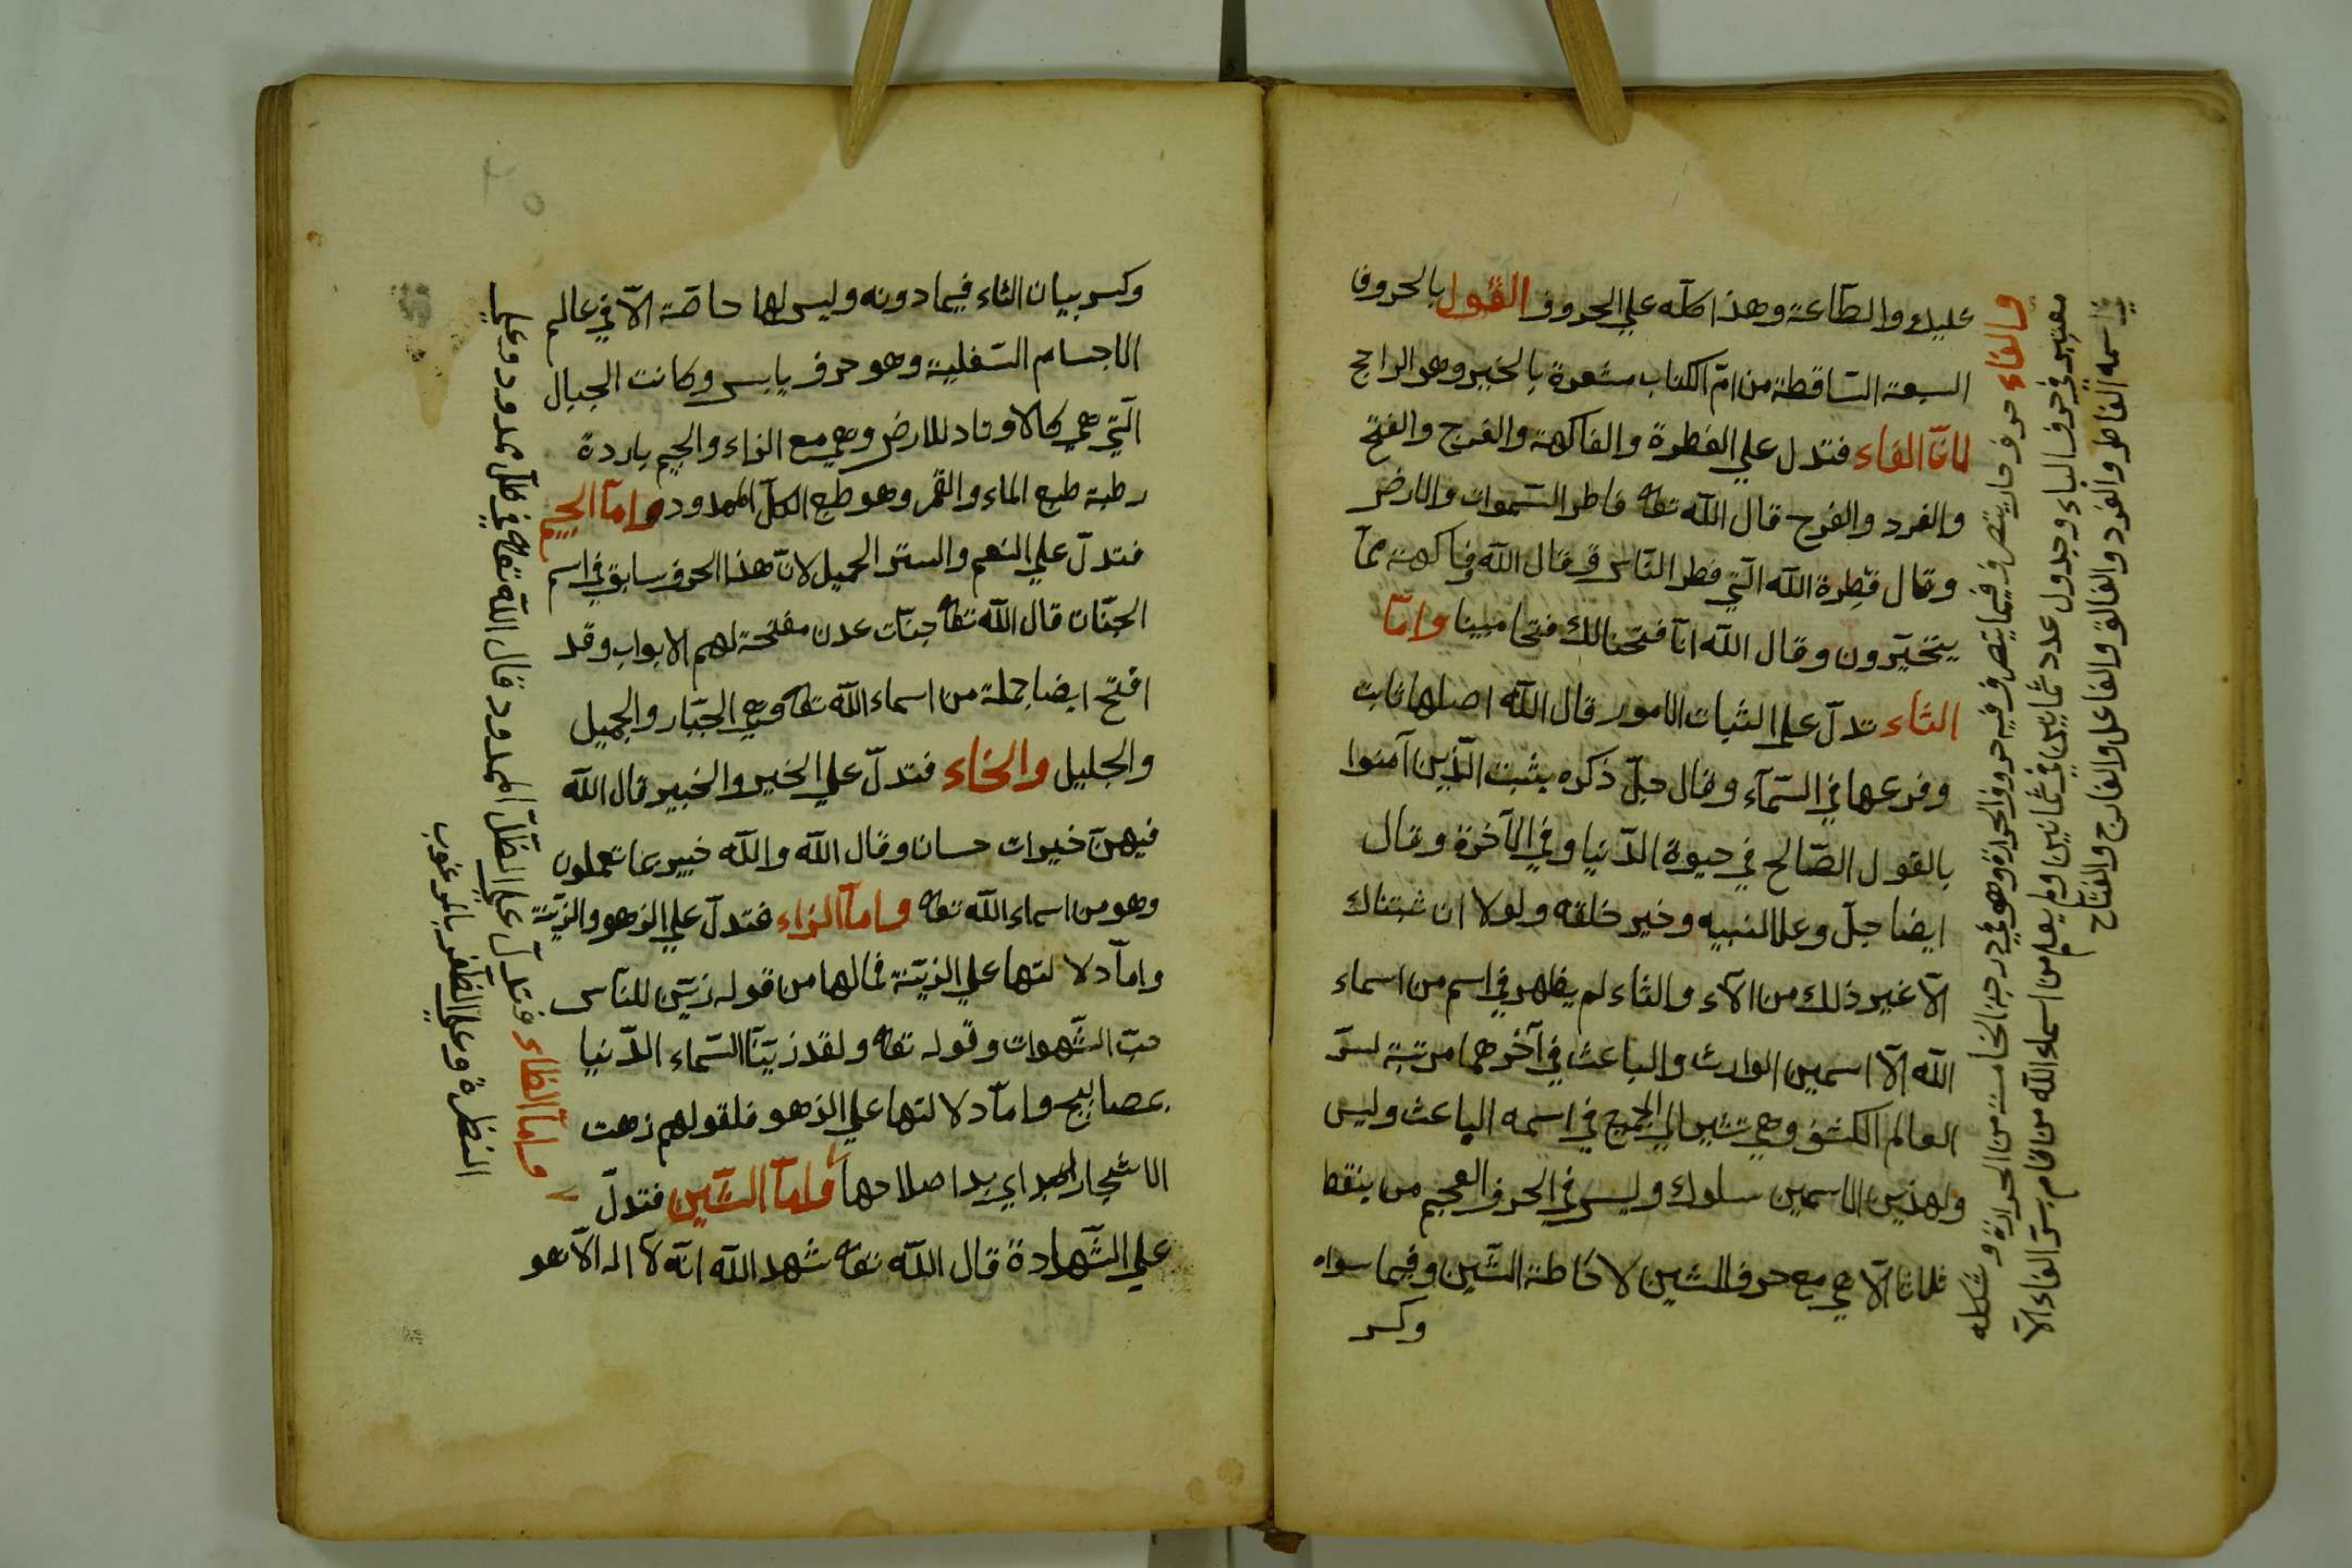 عليك والطاعة وهذا كله علي الحروف القول بالحروف
السبعة الساقطة من ام الكتاب مشعرة بالخير وهو الراجح
امّا الفاء فتدل علي الفطرة والفاكهة والفرج والفتح
والفرد والفرح قال الله تعالى فاطر السموات والارض
وقال فِطرة الله الّتي فطر النّاس وقال الله وفاكهة ممّا
يتخيّرون وقال الله انّا فتحنا لك فتحا مبينا وامّا
الثاء تدلّ علي الثبات الامور قال الله اصلها ثابت
وفرعها في السّمآء وقال جلّ ذكره يثبت الّذين آمنوا
بالقول الصّالح في حيوة الدّنيا وفي الآخرة وقال
ايضا جلّ وعلا لنبيه وخير خلقه ولولا ان ثبتناك
الآ غير ذلك من الآء والثاء لم يظهر في اسم من اسماء
الله الّا اسمين الوارث والباعث في آخرهما مرتبة لسرّ
العالم الكشف وهي تشير الي الجمع في اسمه الباعث وليس
ولهذين الاسمين سلوك وليس في الحرف المعجم من ينقط
ثلاثا الّا هي مع حرف الشين لاحاطة الشّين وفيما سواه
وكسر
والفاء حرف حار يتصرف فيما يتصرف فيه حروف الحرارة وهو في درجة الخامسة من الحرارة وشكله
معتبر في حرف الباء وجدول عدد ثمانين في ثمانين ولم يعلم من اسماء الله من قام بسرّ الفاء الّا
في اسمه الفاطر والفرد والفالق والفاعل والفارج والفتاح
وكسر بيان الثاء فيما دونه وليس لها خاصّة الّا في عالم
الاجسام السّفلية وهو حرف يابس وكانت الجبال
الّتي هي كالاوتاد للارض وهي مع الزاء والجيم باردة
رطبة طبع الماء والقمر وهو طبع الكلّ الممدود وامّا الجيم
فتدلّ علي النعم والستر الجميل لانّ هذا الحرف سابق في اسم
الجنّات قال الله تعالى جنّات عدن مفتحة لهم الابواب وقد
افتح ايضا جملة من اسماء الله تعالى وهي الجبّار والجميل
والجليل والخاء فتدلّ علي الخير والخبير قال الله
فيهنّ خيرات حسان وقال الله والله خبير بما تعملون
وهو من اسماء الله تعالى وامّا الزاء فتدلّ علي الزهو والزيّنة
وامّا دلالتها علي الزيّنة فمالها من قوله زيّن للنّاس
حبّ الشّهوات وقوله تعالى ولقد زيّنّا السّماء الدّنيا
بمصابيح وامّا دلالتها علي الزهو فلقولهم زهت
الاشجار اي بدا صلاحها وامّا الشّين فتدلّ
علي الشّهادة قال الله تعالى شهد الله انّه لا اله الّا هو
وامّا الظاء فتدلّ علي الظّلّ الممدود قال الله تعالى في ظلّ ممدود وعلي
النظرة وعلي الظّفر بالمرغوب